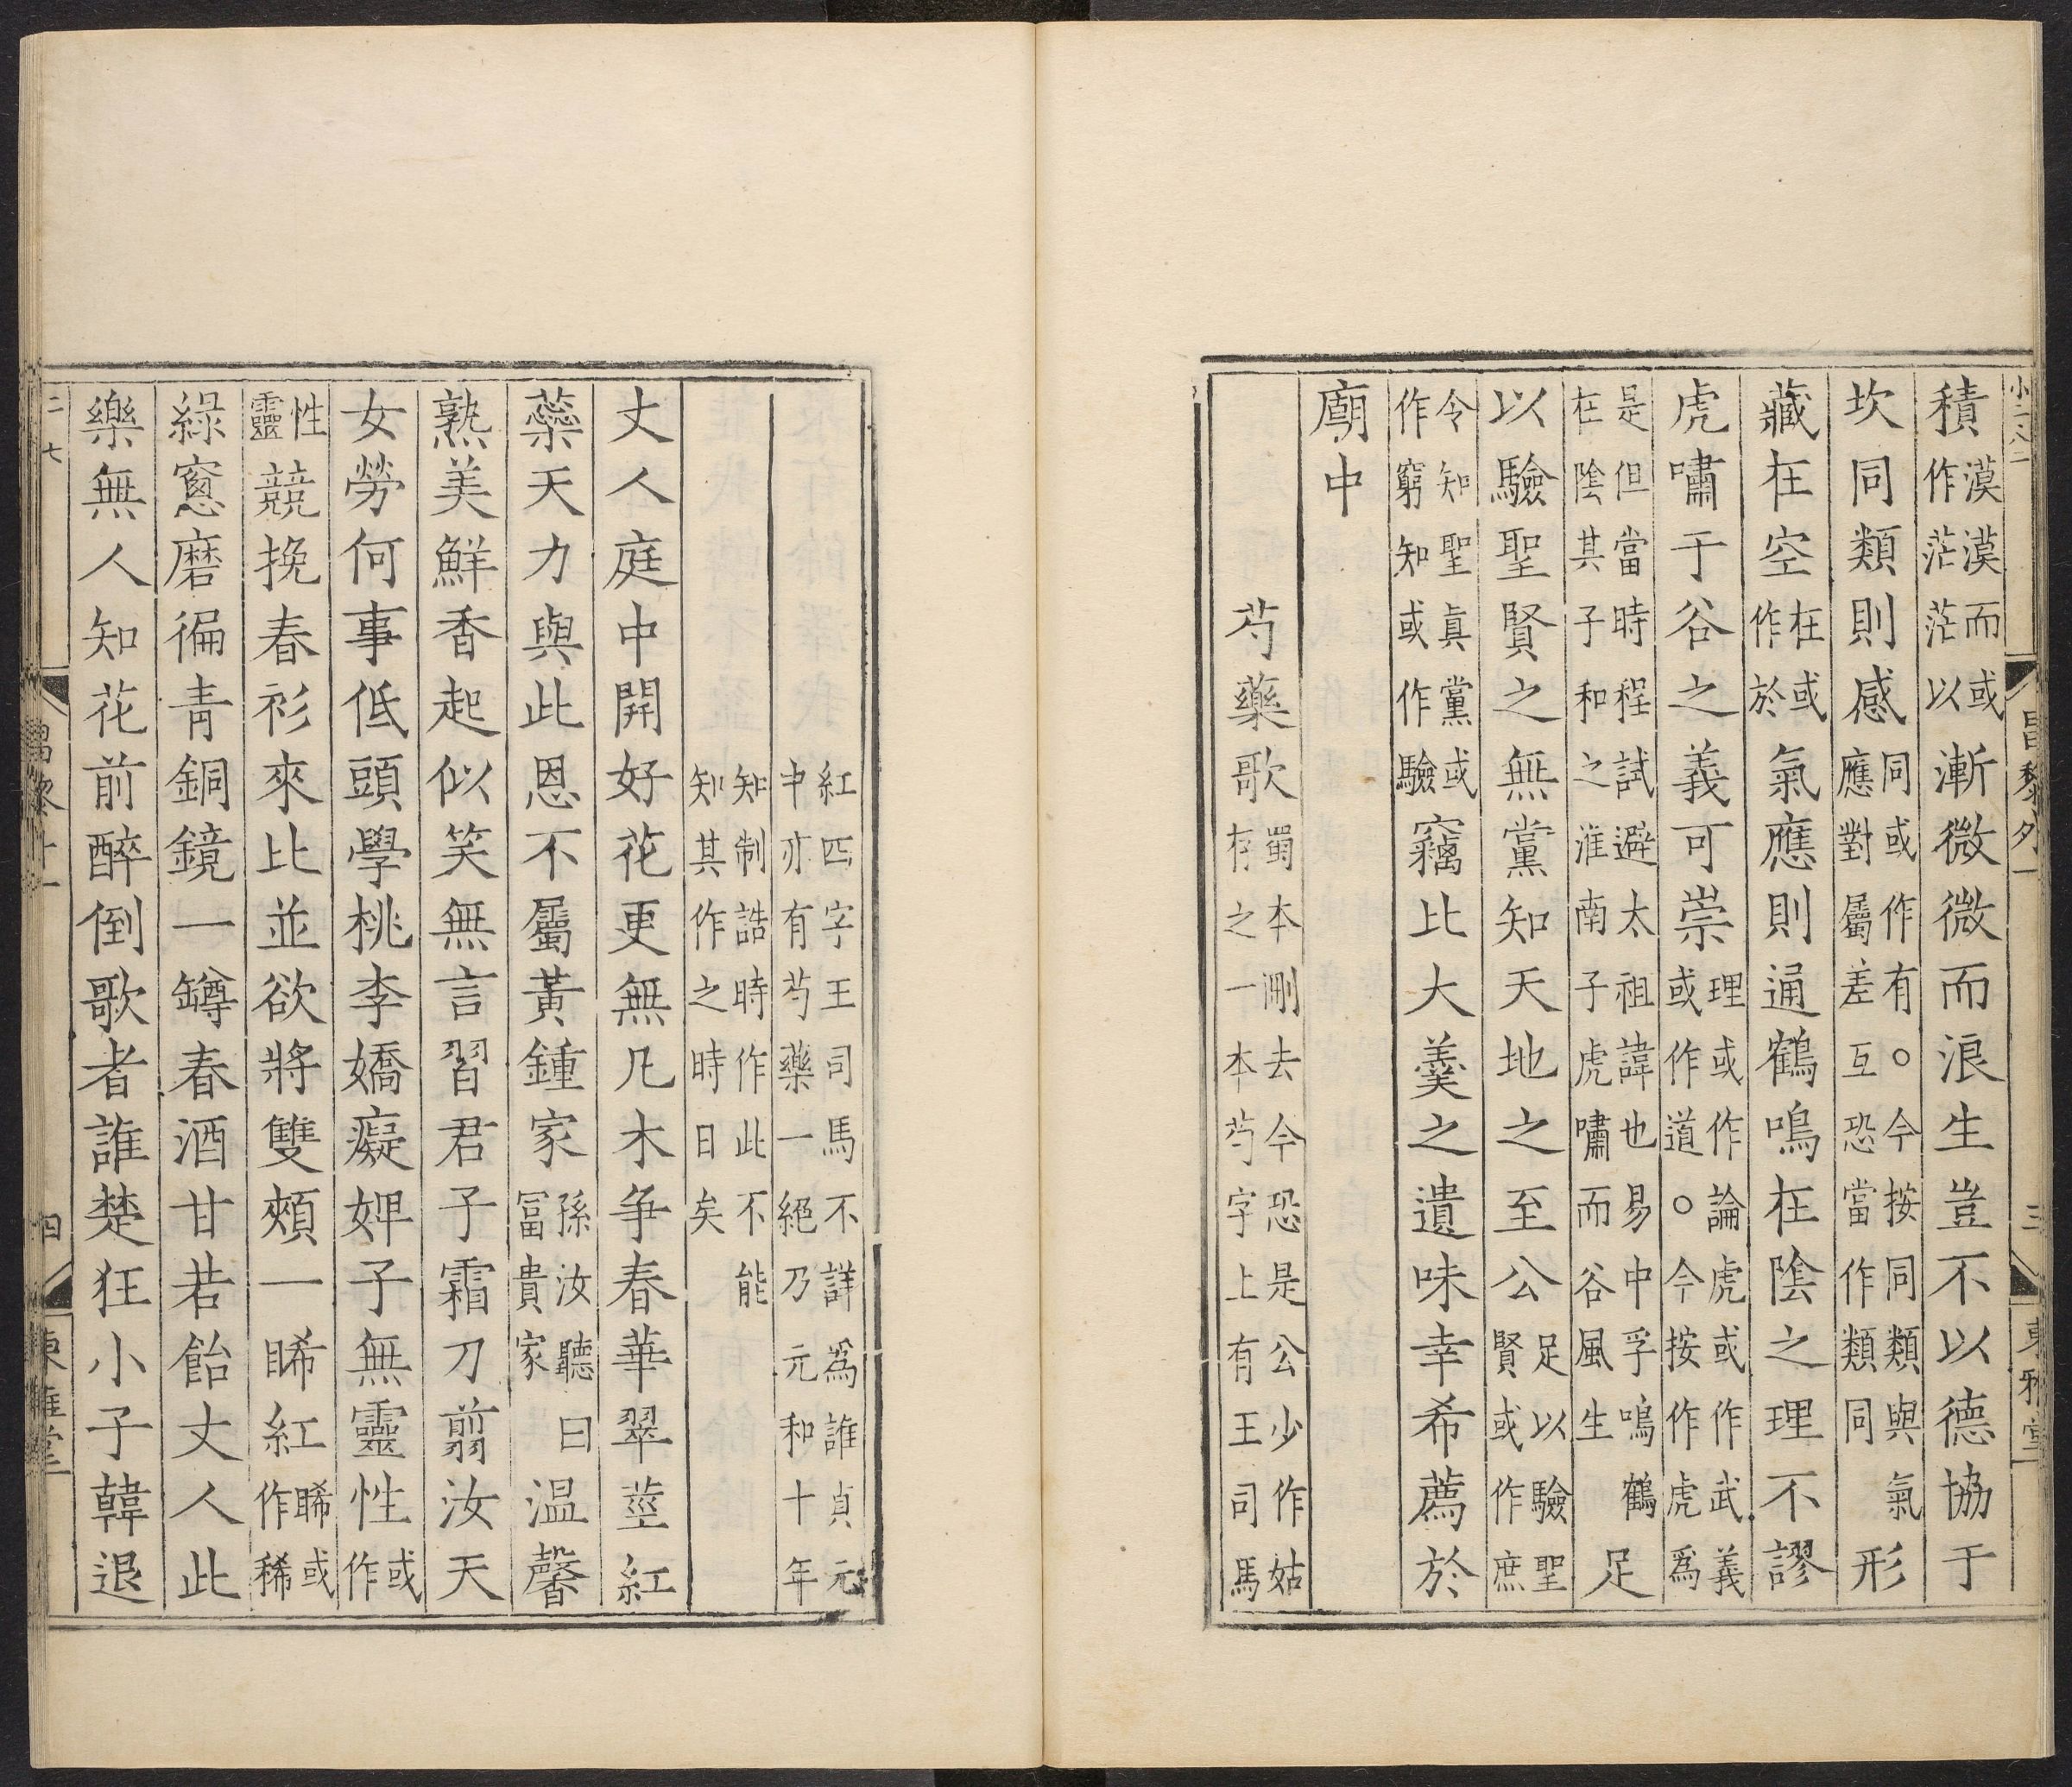 積漠漠而或作茫茫以漸微微而浪生豈不以德協于
坎同類則感同或作有○今按同類與氣應對屬差互恐當作類同形
藏在空在或作於氣應則通鶴鳴在陰之理不謬
虎嘯于谷之義可崇理或作論虎或作武義或作道○今按作虎爲
是但當時程試避太祖諱也易中孚鳴鶴在陰其子和之淮南子虎嘯而谷風生足
以驗聖賢之無黨知天地之至公足以驗聖賢或作庶
令知聖眞黨或作窮知或作驗竊比大羹之遺味幸希薦於
廟中
芍藥歌蜀本刪去今恐是公少作姑存之一本芍字上有王司馬
紅四字王司馬不詳爲誰貞元中亦有芍藥一絕乃元和十年
知制誥時作此不能知其作之時日矣
丈人庭中開好花更無凡木爭春華翠莖紅
蘂天力與此恩不屬黃鍾家孫汝聽曰冨貴家温馨
熟美鮮香起似笑無言習君子霜刀翦汝天
女勞何事低頭學桃李嬌癡婢子無靈性或作
性靈競挽春衫來比並欲將雙頰一睎紅睎或作稀
綠窻磨徧青銅鏡一罇春酒甘若飴丈人此
樂無人知花前醉倒歌者誰楚狂小子韓退
昌黎外一
三
東雅堂
二七
昌黎十一
四
東雅堂